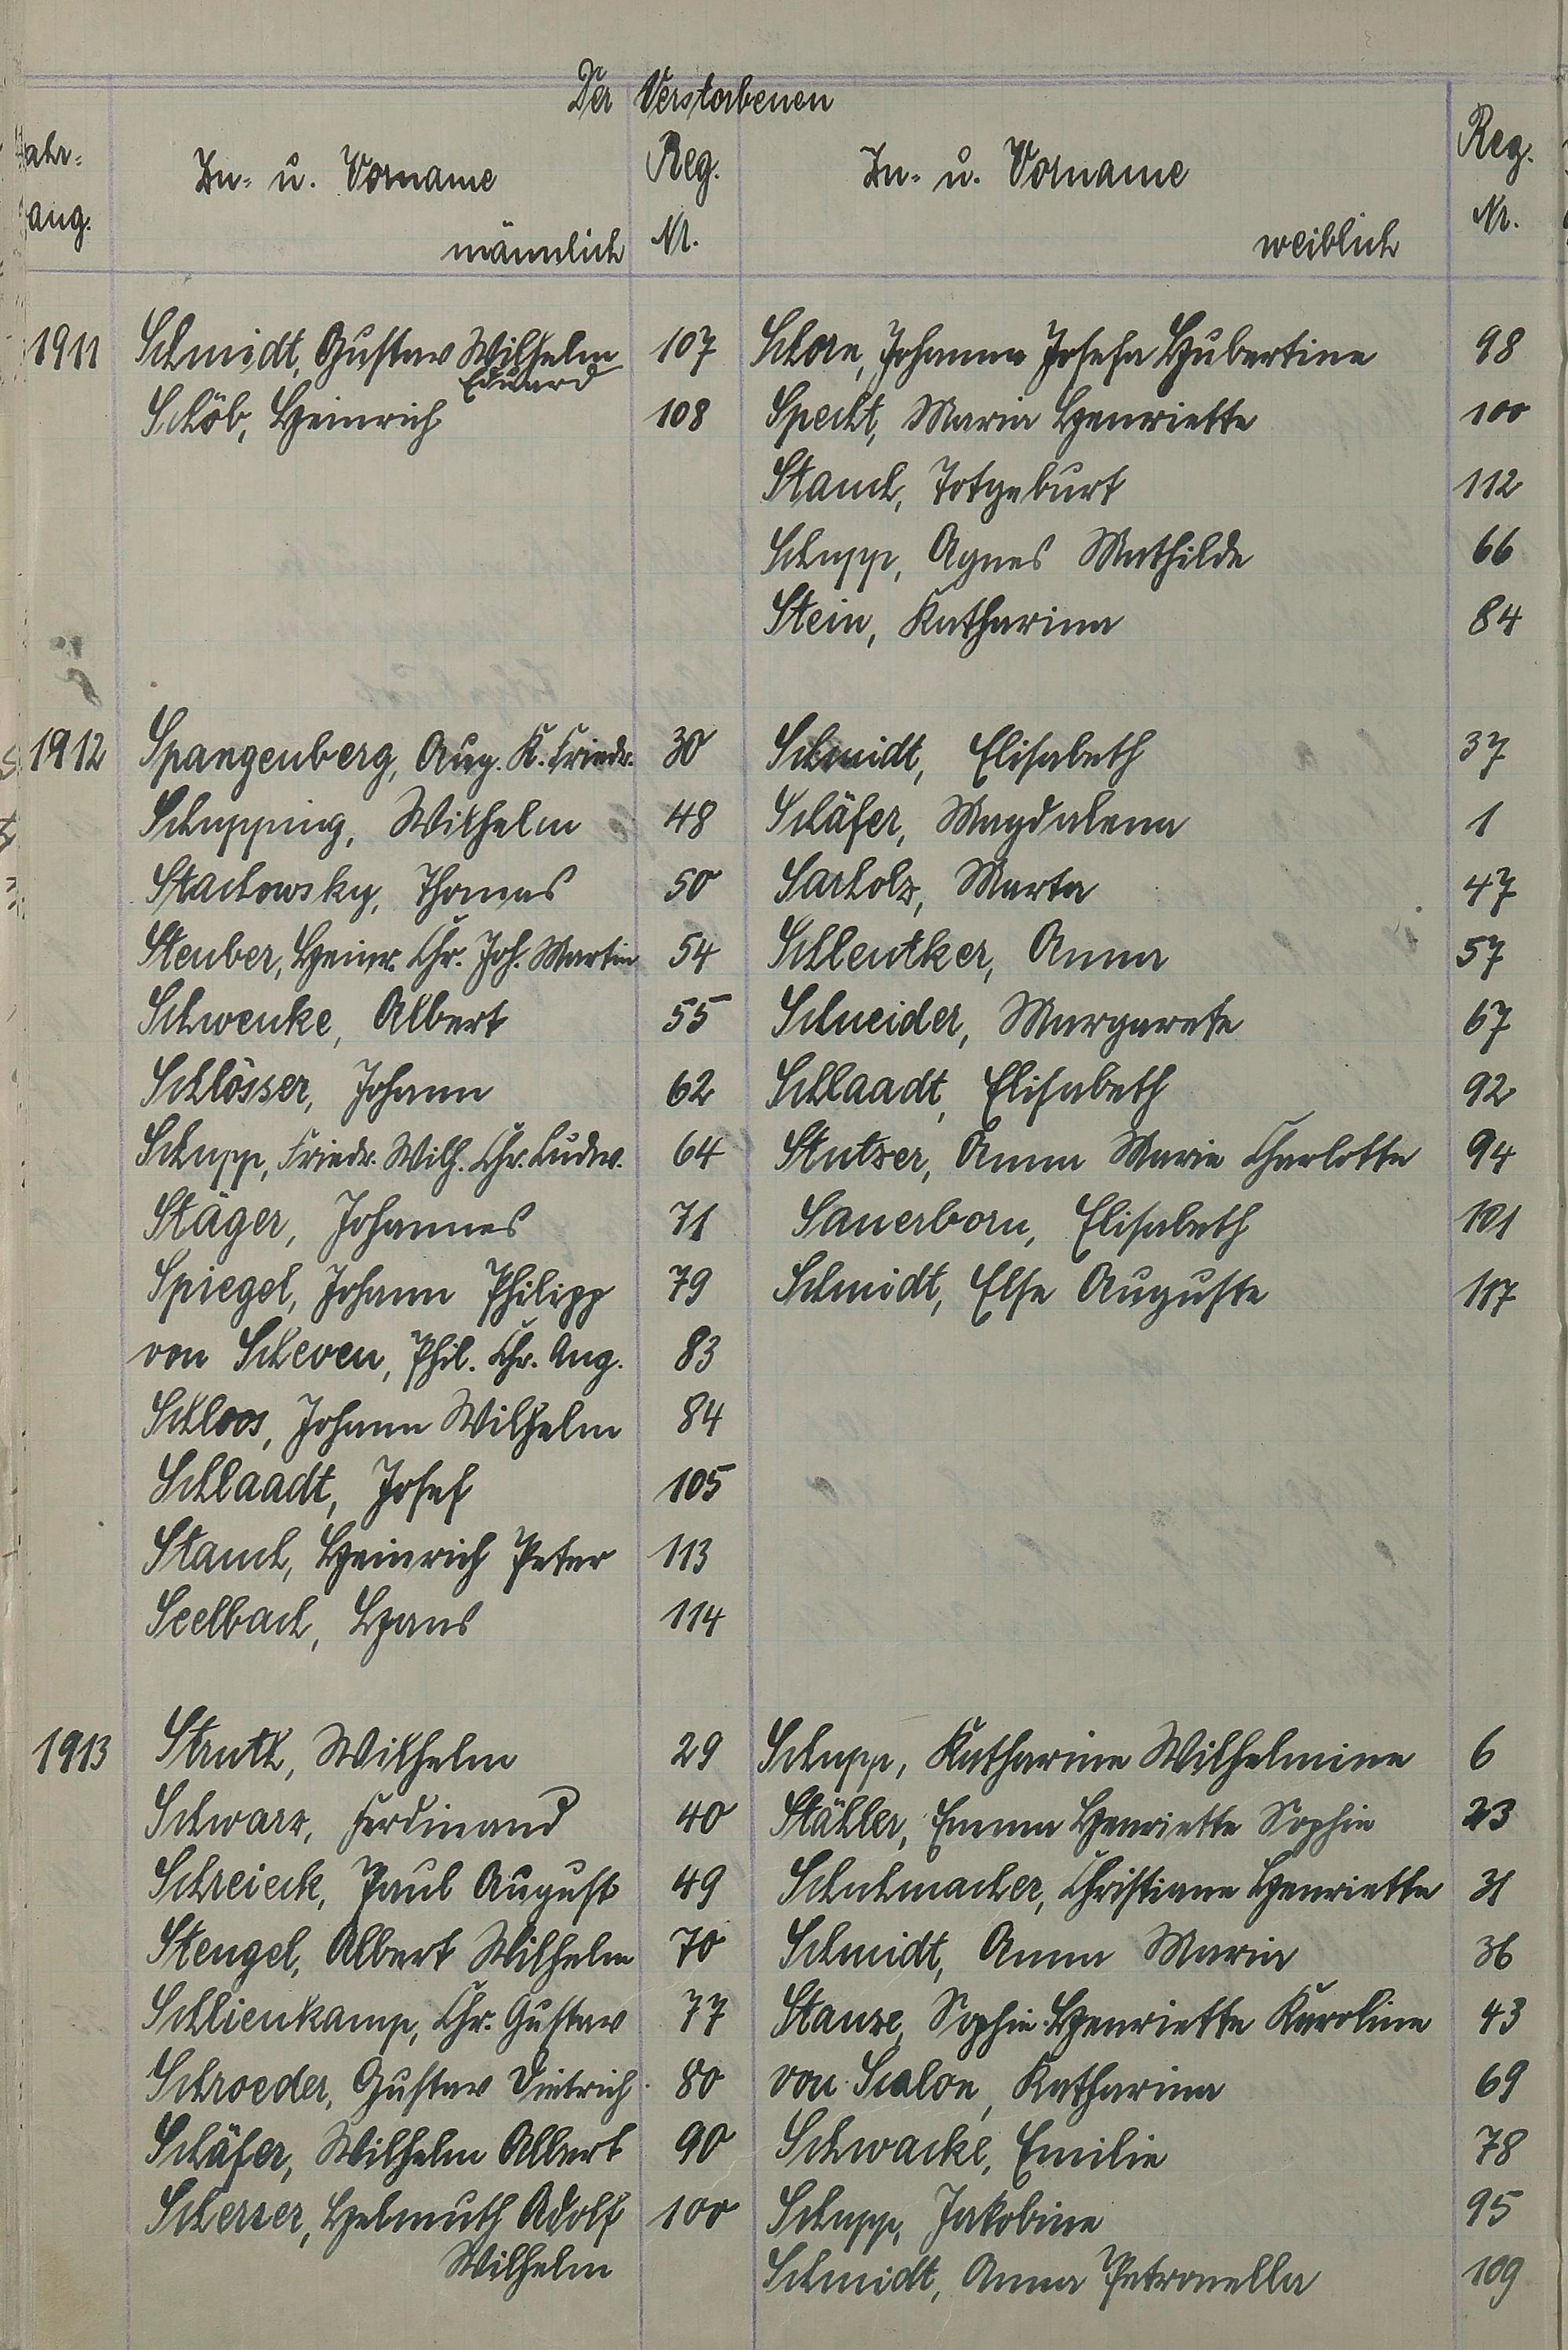 Der Verstorbenen
Jahr- Zu- u. Vorname Reg. Zu- u. Vorname Reg.
gang. männlich Nr. weiblich Nr.
1911 Schmidt, Gustav Wilhelm 107 Schorn, Johanna Josefa Hubertine 98
Eduard
Schöb, Heinrich 108 Specht, Maria Henriette 100
Stauch, Totgeburt 112
Schupp, Agnes Mathilde 66
Stein, Katharina 84
1912 Spangenberg, Aug. K. Friedr. 30 Schmidt, Elisabeth 37
Schupping, Wilhelm 48 Schäfer, Magdalena 1
Stachowsky, Thomas 50 Sarholz, Marta 47
Steuber, Heinr. Chr. Joh. Martin 54 Schleutker, Anna 57
Schwenke, Albert 55 Schneider, Margarete 67
Schlösser, Johann 62 Schlaadt, Elisabeth 92
Schupp, Friedr. Wilh. Chr. Ludw. 64 Stutzer, Anna Marie Charlotte 94
Stäger, Johannes 71 Sauerborn, Elisabeth 101
Spiegel, Johann Philipp 79 Schmidt, Else Auguste 117
von Scheven, Phil. Chr. Aug. 83
Schloos, Johann Wilhelm 84
Schlaadt, Josef 105
Stauch, Heinrich Peter 113
Seelbach, Hans 114
1913 Struth, Wilhelm 29 Schupp, Katharine Wilhelmine 6
Schwarz, Ferdinand 40 Stähler, Emma Henriette Sophie 23
Schreieck, Paul August 49 Schuhmacher, Christiane Henriette 31
Stengel, Albert Wilhelm 70 Schmidt, Anna Maria 36
Schlienkamp, Chr. Gustav 77 Stanze, Sophie Henriette Karoline 43
Schroeder, Gustav Dietrich 80 von Scalon, Katharina 69
Schäfer, Wilhelm Albert 90 Schwacke, Emilie 78
Scherzer, Helmuth Adolf 100 Schupp, Jakobine 95
Wilhelm Schmidt, Anna Petronella 109